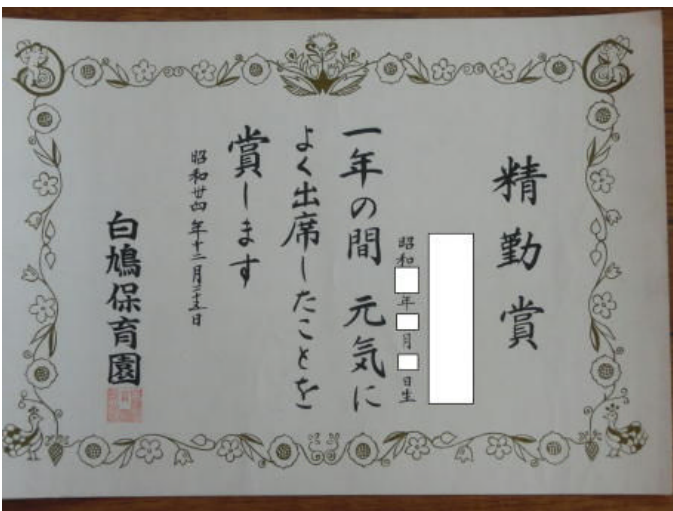 精勤賞
昭和 年 月 日生
一年の間 元気に
よく出席したことを
賞します
昭和廿四年十二月二十五日
白鳩保育園